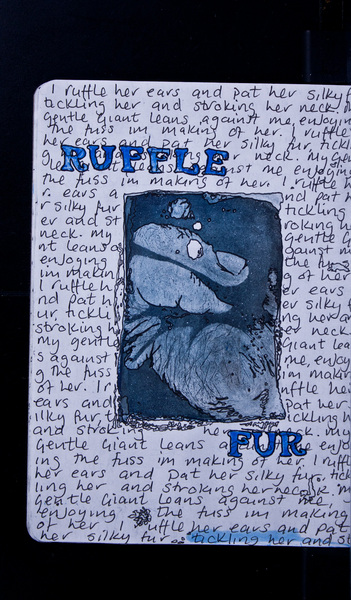 I ruffle her ears and pat her silky f
tickling her and stroking her neck.
gentle Giant leans against me, enjoying
the fuss im making of her. I ruffle
her ears and pat her silky fur, tickl
RUFFLE
neck. My
me enjoying
the fuss im making of her. I ruffle
ears a
and pat
ir silky fur
tickling
er and st
roking h
neck. my
Gentle G
nt leans
against m
enjoying
the fuss
im makin
g of her
I ruffle h
er ears
nd pat h
er silky
ur, tickli
ng her an
stroking h
er neck.
my gentle
Giant lea
s against
me, enjoy
the fuss
im makin
of her. I r
uffle her
ears and
pat her
illky fur, t
ickling h
and strok
her neck. my
gentle Giant leans a
FUR
ing the fuss im making of her. I ruffle
her ears and pat her silky fur, tick
ling her and stroking her neck. my
gentle Giant Loans against me,
enjoying the fuss im making
of her. I ruffle her ears and pat
her silky fur, tickling her and st